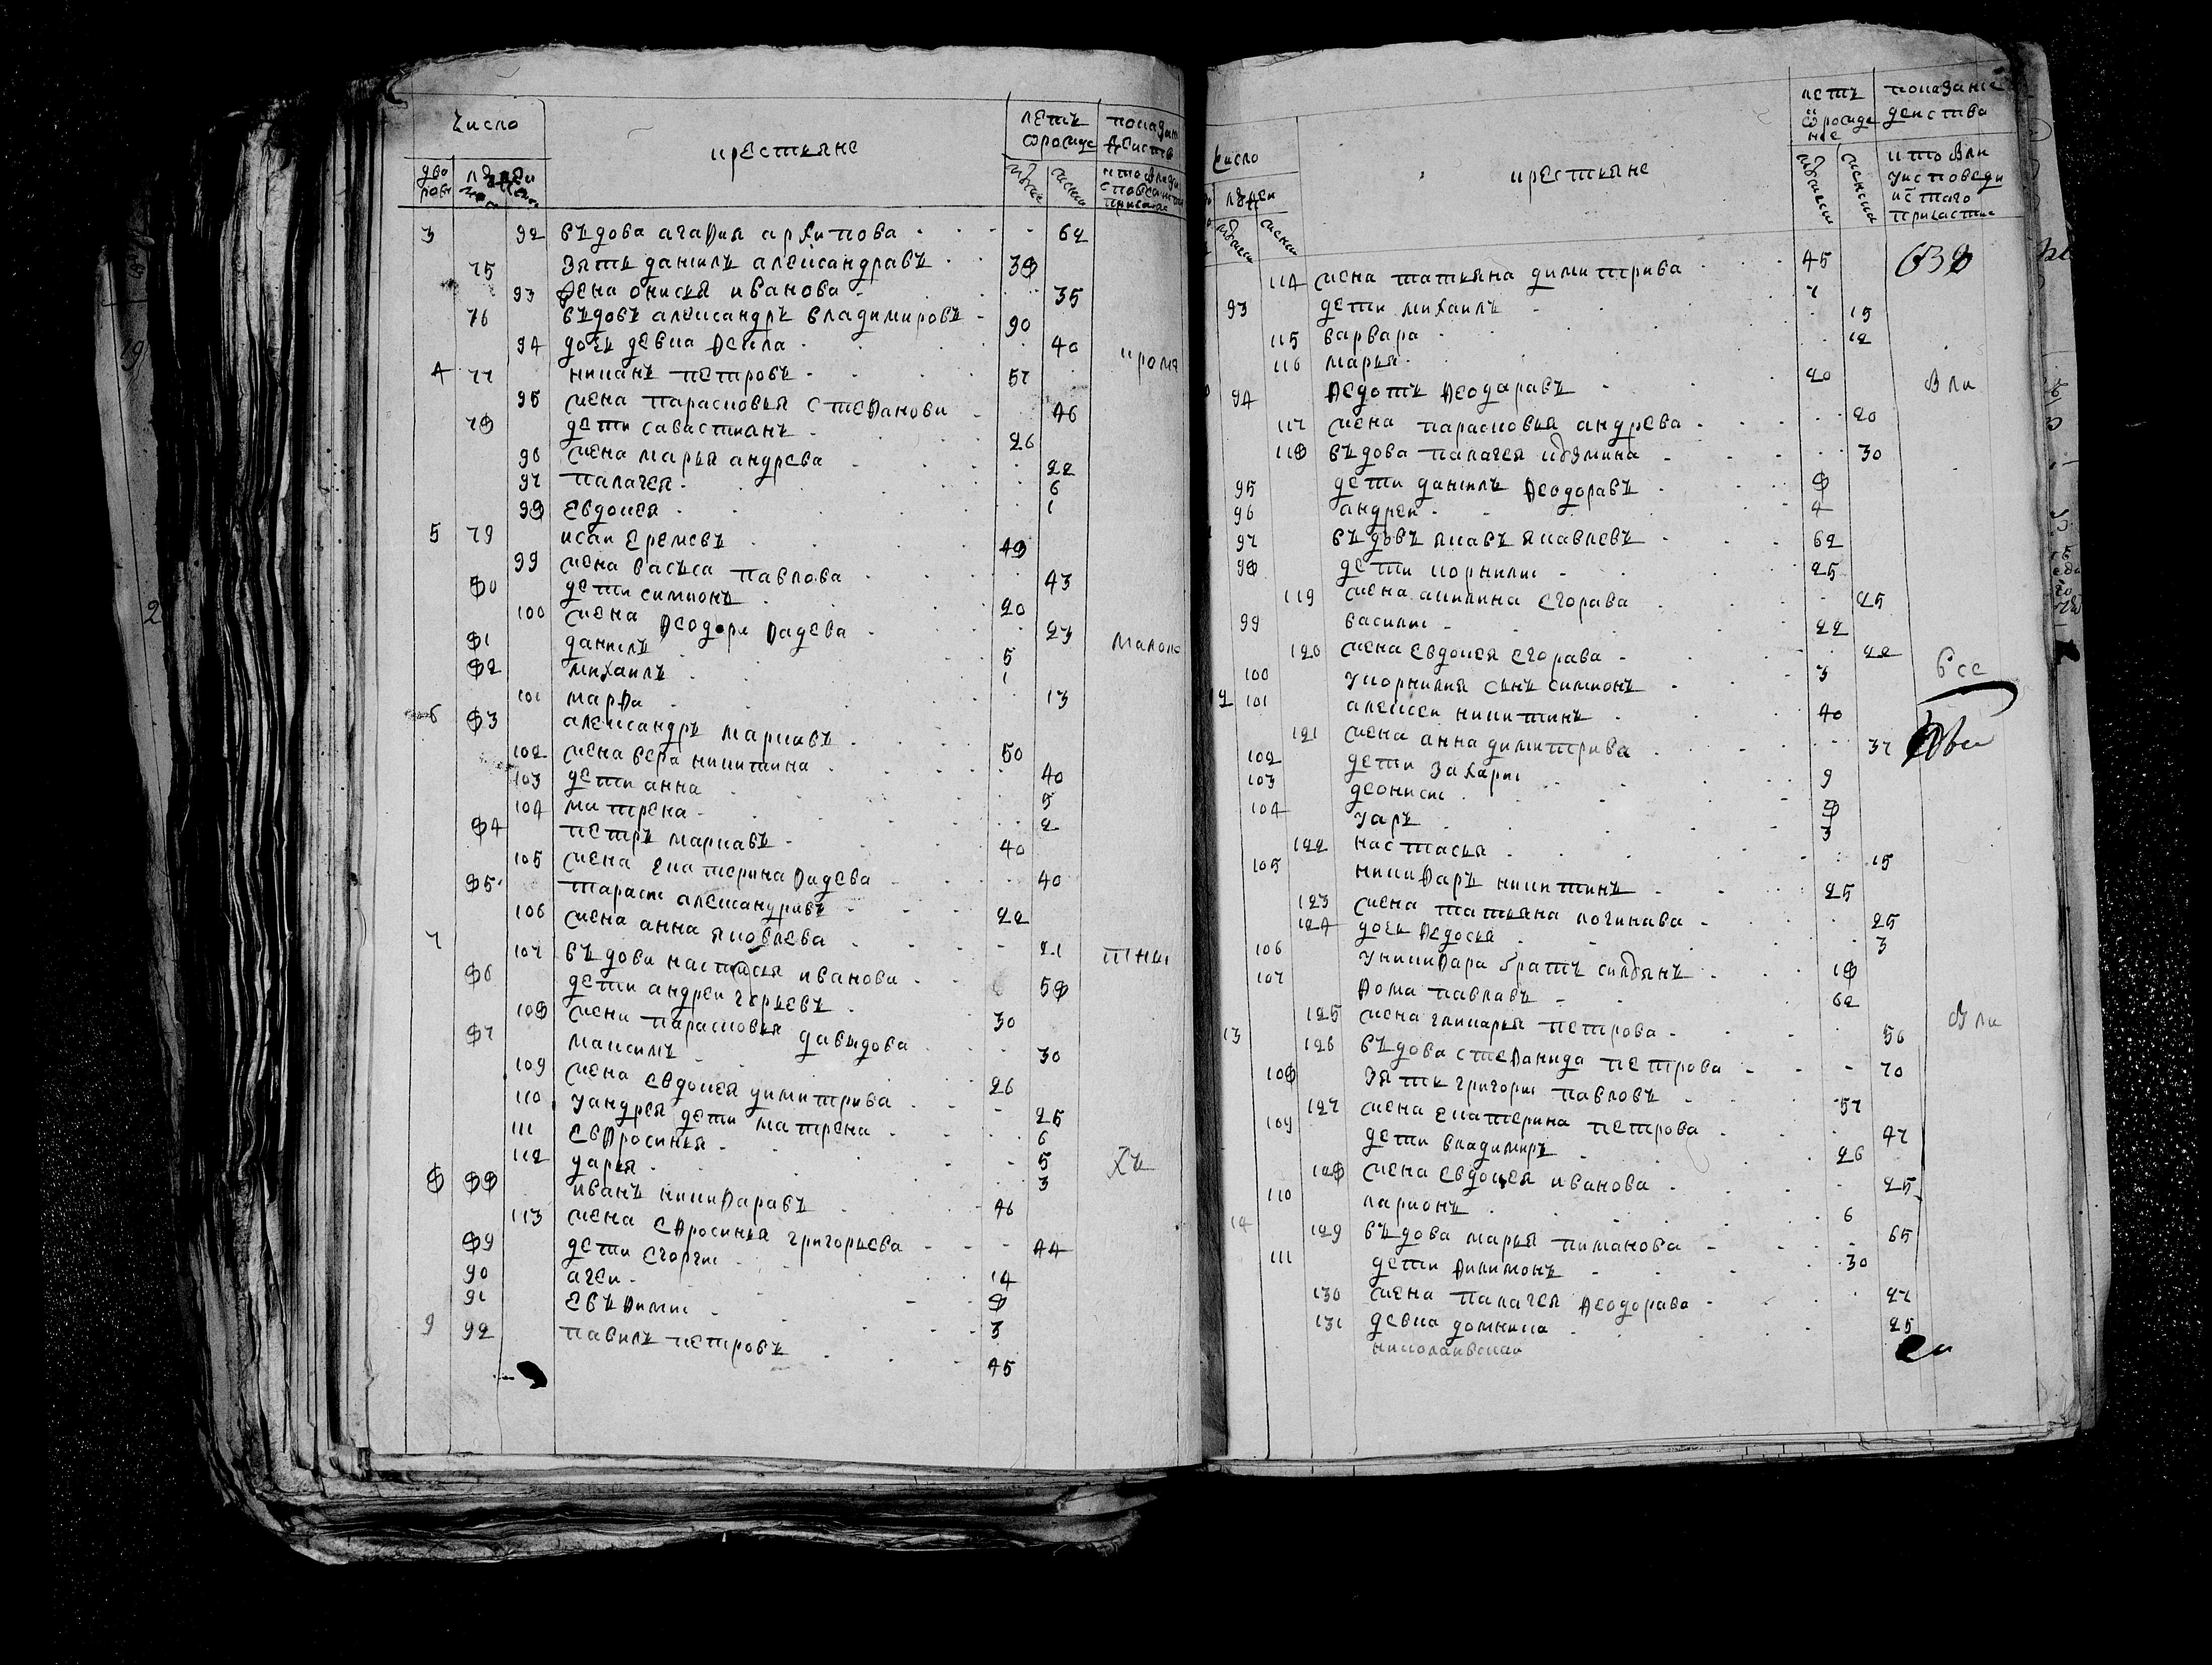 число
крестьяне
летъ
ѿрожде
показан
действ
дво
ровъ
людеи
3 92 въдова агафия архипова 62
75 зять данилъ александравъ 38
93 жена онисья иванова 35
76 въдовъ александръ владимировъ 90
94 дочь девка фекла 40
4 77 никанъ петровъ 57
95 жена парасковья стефанови 46
78 дети савастианъ 26
96 жена марья андрева 22
97 палагея 6
98 евдокея 1
5 79 исаи еремевъ 48
99 жена васъса павлова 43
80 дети симионъ 20
100 жена феодора фадева 23
81 данилъ 5
82 михаилъ 1
101 марфа 13
6 83 александръ маркавъ 50
102 жена вера никитина 40
103 дети анна 5
104 матрена 2
84 петръ маркавъ 40
105 жена екатерина фадева 40
85 тараси александравъ 22
106 жена анна яковлева 21
7 107 въдова настасья иванова 58
86 дети андреи герьевъ 30
108 жена парасковья давыдова 30
87 максимъ 26
109 жена евдокея димитрива 25
110 уандрея дети матрена 6
111 евфросинья 5
112 дарья 3
8 88 иванъ никифаравъ 46
113 жена ефросинья григорьева 44
89 дети егоргии 14
90 агеи 8
91 евъфимии 3
9 92 павилъ петровъ 45
число
людеи
крестьяне
летъ
ѿрожде
ние
показание
деиства
кто был
уисповеди
истаго
причастие
114 жена татьяна димитрива 45
93 дети михаилъ 7
115 варвара 15
116 марья 12
94 федотъ феодаравъ 20
117 жена парасковья андрева 20
118 въдова палагея кузмина 30
95 дети данилъ феодоравъ 8
96 андреи 4
97 въдовъ яковъ яковлевъ 62
98 дети корнилии 25
119 жена акилина егорава 25
99 василии 22
120 жена евдокея егорава 22
100 укорнилия сынъ симионъ 3
12 101 алексеи никитинъ 40
121 жена анна димитрива 37
102 дети захарии 9
103 деонисии 8
104 уаръ 3
122 настасья 15
105 никифаръ никитинъ 25
123 жена татьяна логинава 25
124 дочь федосья 3
106 уникифара братъ силуянъ 18
107 фома павлавъ 62
125 жена гликарья петрова 50
13 126 въдова стефанида петрова 70
108 зять григории павловъ 57
127 жена екатерина петрова 47
109 дети владимиръ 26
128 жена евдокея иванова 25
110 ларионъ 6
14 129 въдова марья пиманова 65
111 дети филимонъ 30
130 жена палагея феодорава 27
131 девка домника 25
николаивскаи